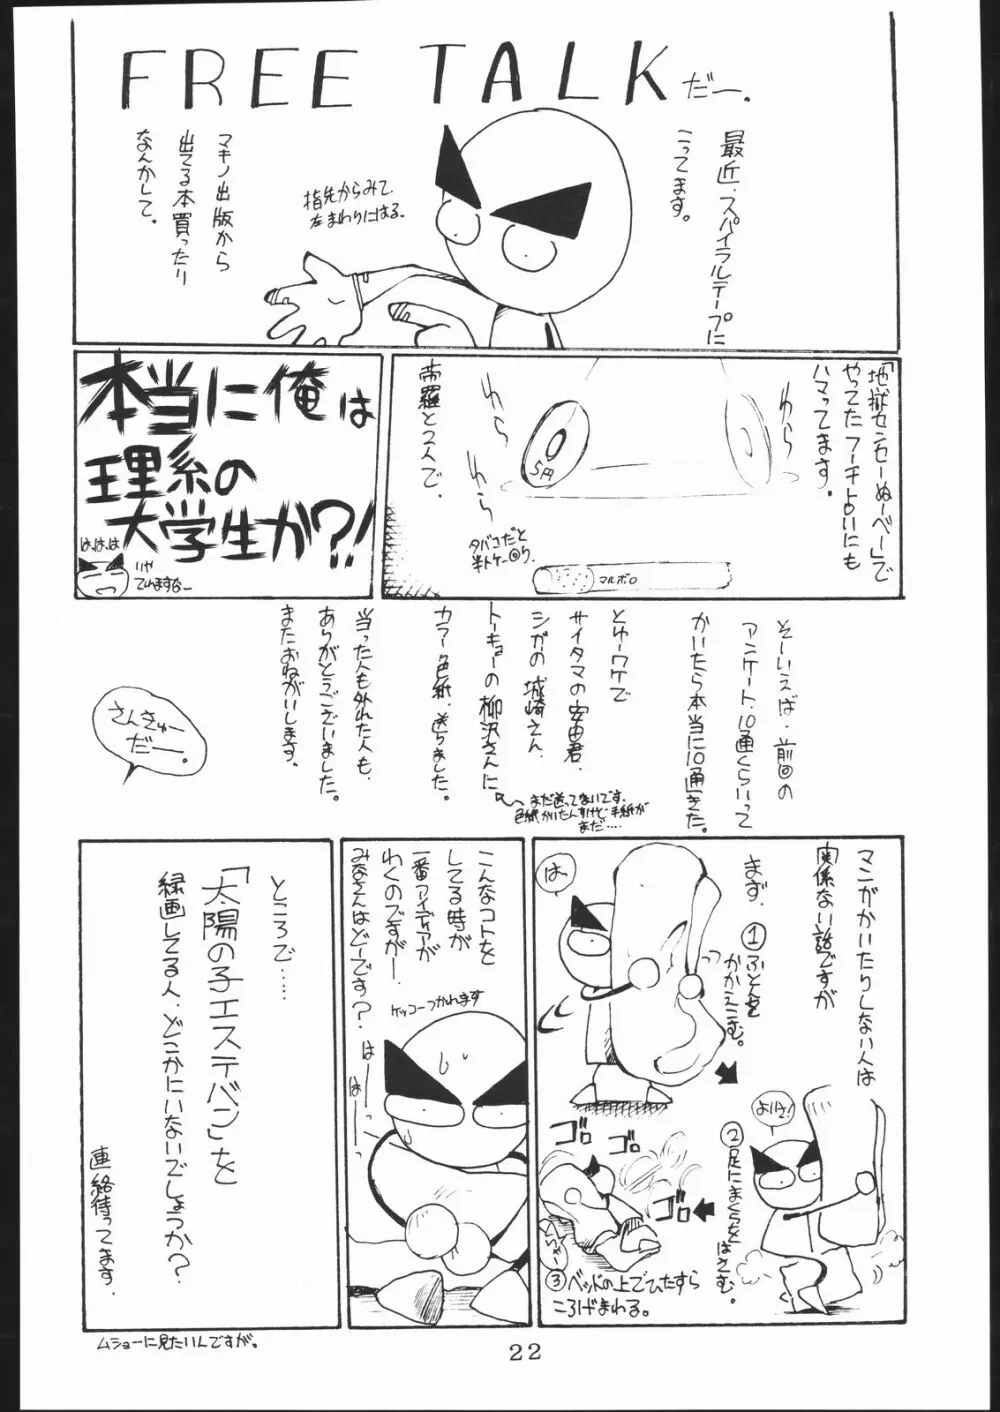 FREE TALK だー.
最近、スパイラルテープに
こってます。
指先からみて、
左まわりにはる。
マキノ出版から
出てる本買ったり
なんかして。
「地獄センセーぬーべー」で
やってたフーチとかいにも
ハマってます。
わら
わら
わら
5円
帝羅と2人で、
タバコだと
マルボロ
本当に俺は
理系の
大学生か?!
は、は、は
いや
てれますなー
そーいえば、前回の
アンケート、10通くらいって
かいたら本当に10通きた。
とゆーワケで
サイタマの安田君、
シガの城崎さん、
トーキョーの柳沢さんに
カラー色紙、送りました。
まだ送ってないです。
色紙かいたんすけど、手紙が
まだ....
当った人も外れた人も、
ありがとうございました。
またおねがいします。
さんきゅー
だー.
マンガかいたりしない人は
関係ない話ですが
まず、
①ふとんを
かかえこむ。
は、
よいしょ!
②足にまくらを
はさむ。
ゴロ
ゴロ
ゴロ
③ベッドの上でひたすら
ころげまわる。
こんなコトを
してる時が
一番アイディアが
わくのですが—、
みなさんはどーです?
ケッコーつかれます
はー
はー
ところで……
「太陽の子エステバン」を
録画してる人、どこかにいないでしょうか?
連絡待ってます.
ムショーに見たいんですが。
22